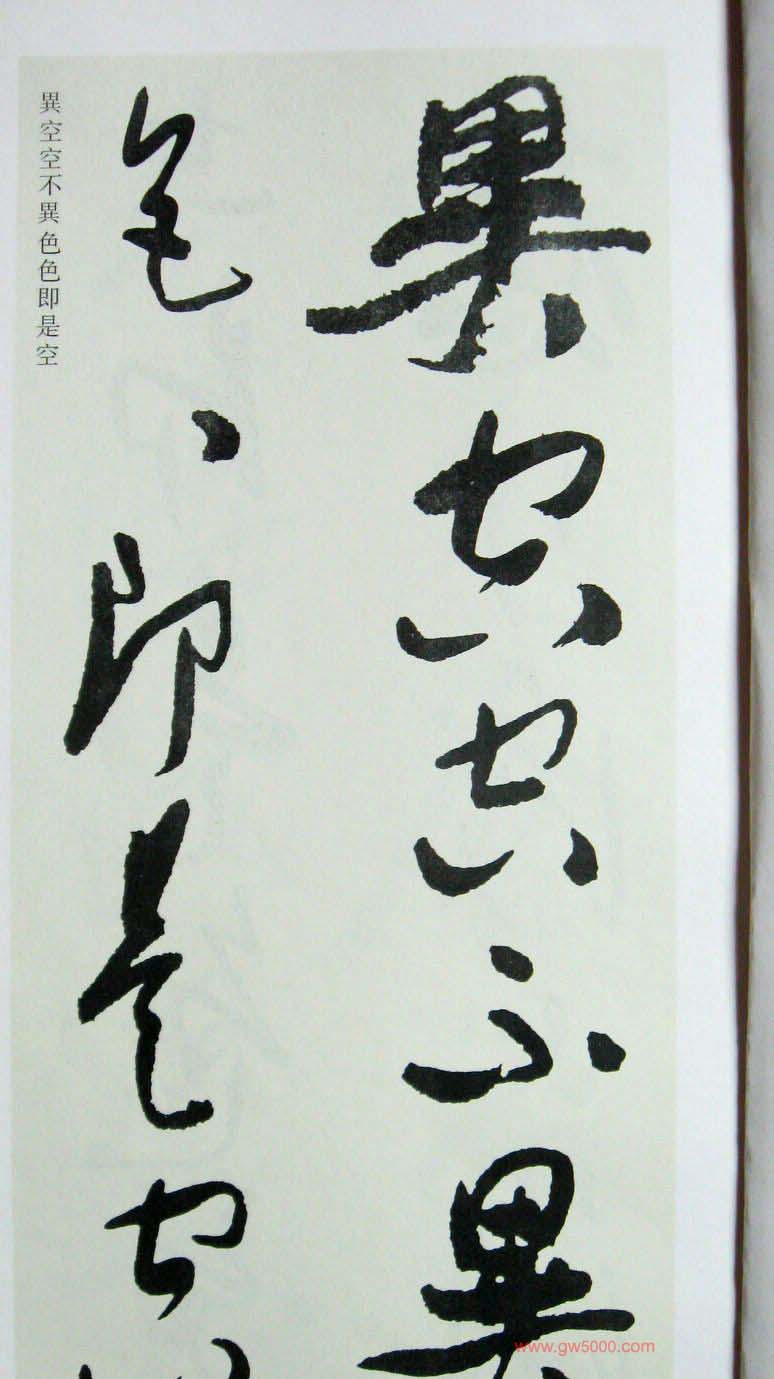 異空空不異
色、即是空
異空空不異色色即是空
www.gw5000.com